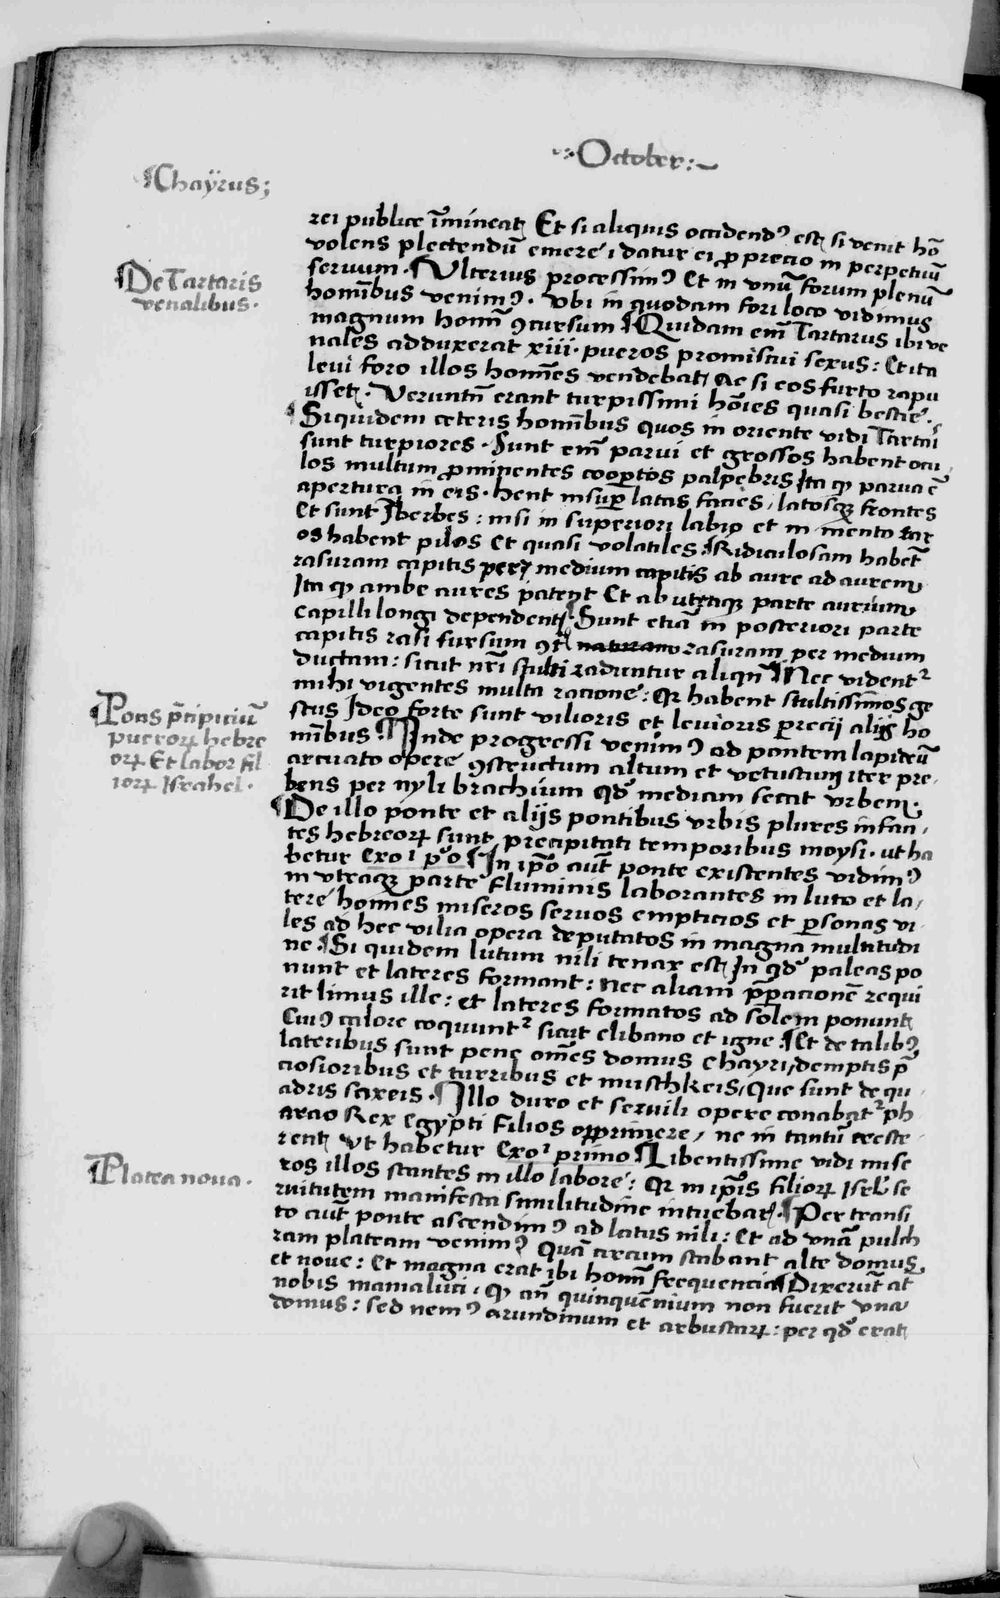 October:~
¶Chaÿrus;
rei publice im̄ineatꝫ Et si aliquis occidendꝰ estꝫ si venit hō
volens plectendū emere i datur ei ꝓ precio in perpetuū
¶De Tartaris
venalibus.
seruum. ¶Vlterius processimꝰ Et in vnū forum plenū
homībus venimꝰ. Vbi in quodam fori loco vidimus
magnum homīn ꝯcursum ¶Quidam em̄ Tartarus ibi ve
nales adduxerat xiii. pueros promiscui sexus: Et ita
leui foro illos homīes vendebatꝫ Ac si eos furto rapu
issetꝫ. Veruntn̄ erant turpissimi hōies quasi bestie.
¶Siquidem ceteris homībus quos in oriente vidi Tartari
sunt turpiores. Sunt em̄ parui et grossos habent ocu
los multum ꝓminentes coop̱tos palpebris Ita qꝫ parua ē
apertura in eis. hent insup̱ latas facies, latosqꝫ frontes
Et sunt Iberbes: nisi in superiori labio et in mento rar
os habent pilos Et quasi volatiles. ¶Ridiculosam habēt
rasuram capitis per medium capitis ab aure ad aurem
Ita qꝫ ambe aures patent Et ab utraqꝫ parte aurium
capilli longi dependentꝫ. ¶Sunt etiā in posteriori parte
capitis rasi sursum rasuram per medium
ductam: sicut nr̄i stulti raduntur aliqn̄ ¶Nec videntᷣ
mihi vigentes multa racione: Qr habent stultissimos ge
¶Pons p̄cipiciū
pueroꝝ hebre
oꝝ Et labor fil
ioꝝ Israhel.
stus Ideo forte sunt vilioris et leuioris precii alijs ho
mībus. ¶Inde progressi venimꝰ ad pontem lapideū
arcuato opere ꝯstructum altum et vetustum iter pre,
bens per nyli brachium qd̄ mediam secat vrbem.
¶De illo ponte et alijs pontibus vrbis plures infan,
tes hebreoꝝ sunt precipitati temporibus moysi. ut ha
betur Exoⁱ pᵒo ¶In ip̄o aut̄ ponte existentes vidimꝰ
in vtraqꝫ parte fluminis laborantes in luto et la,
tere homīes miseros seruos empticios et ꝑsonas vi
les ad hec vilia opera deputatos in magna multitudi
ne. ¶Si quidem lutum nili tenax estꝫ In qd̄ paleas po
nunt et lateres formant: nec aliam p̄ꝑacionē requi
rit limus ille: et lateres formatos ad solem ponuntꝫ
Cuiꝰ calore coquuntᷣ sicut clibano et igne. ¶Et de talibꝰ
lateribus sunt pene om̄es domus Chayri, demptis p̄
ciosioribus et turribus et muschkeis, Que sunt de qu
adris saxeis. ¶Illo duro et seruili opere conabatᷣ ph
arao Rex egypti filios opprimere, ne in tantū cresce
rentꝫ Vt habetur Exoⁱ primo ¶Libentissime vidi mise
¶Platea noua.
ros illos stantes in illo labore: Qr in ip̄is filioꝝ Isrl̄ se
ruitutem manifesta similitudine intuebarꝫ. ¶Per transi
to aut̄ ponte ascendimꝰ ad latus nili: Et ad vnā pulch
ram plateam venimꝰ Quā circum stabant alte domus
et noue: Et magna erat ibi homīn frequencia ¶Dixerūt at̄
nobis mamaluci, Qꝫ an̄ quinquēnium non fuerit vna
domus: sed nemꝰ arundinum et arbustaꝝ: per qd̄ eratꝫ